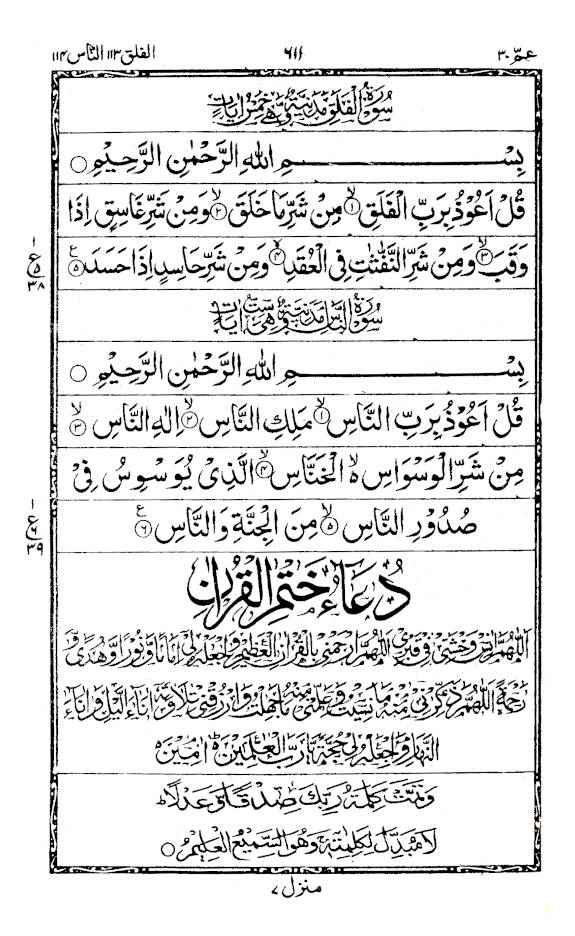 عمّ ۳۰ ۶۱۱ الفلق ۱۱۳ الناس ۱۱۴
سُوْرَةُ الْفَلَقِ مَدَنِيَّةٌ وَّهِيَ خَمْسُ اٰيَاتٍ
بِسْمِ اللهِ الرَّحْمٰنِ الرَّحِيْمِ ○
قُلْ اَعُوْذُ بِرَبِّ الْفَلَقِ ۙ۱ مِنْ شَرِّ مَا خَلَقَ ۙ۲ وَمِنْ شَرِّ غَاسِقٍ اِذَا
وَقَبَ ۙ۳ وَمِنْ شَرِّ النَّفّٰثٰتِ فِي الْعُقَدِ ۙ۴ وَمِنْ شَرِّ حَاسِدٍ اِذَا حَسَدَ ۵ ع
۱ ع ۵ ۳۸
سُوْرَةُ النَّاسِ مَدَنِيَّةٌ وَّهِيَ سِتُّ اٰيَاتٍ
بِسْمِ اللهِ الرَّحْمٰنِ الرَّحِيْمِ ○
قُلْ اَعُوْذُ بِرَبِّ النَّاسِ ۙ۱ مَلِكِ النَّاسِ ۙ۲ اِلٰهِ النَّاسِ ۙ۳
مِنْ شَرِّ الْوَسْوَاسِ ەۙ الْخَنَّاسِ ۙ۴ الَّذِيْ يُوَسْوِسُ فِيْ
صُدُوْرِ النَّاسِ ۙ۵ مِنَ الْجِنَّةِ وَالنَّاسِ ۶ ع
۱ ع ۶ ۳۹
دُعَآءُ خَتْمِ الْقُرْاٰنِ
اَللّٰهُمَّ اٰنِسْ وَحْشَتِيْ فِيْ قَبْرِيْ اَللّٰهُمَّ ارْحَمْنِيْ بِالْقُرْاٰنِ الْعَظِيْمِ وَاجْعَلْهُ لِيْ اِمَامًا وَّنُوْرًا وَّهُدًى وَّ
رَحْمَةً اَللّٰهُمَّ ذَكِّرْنِيْ مِنْهُ مَا نَسِيْتُ وَعَلِّمْنِيْ مِنْهُ مَا جَهِلْتُ وَارْزُقْنِيْ تِلَاوَتَهٗ اٰنَآءَ الَّيْلِ وَاٰنَآءَ
النَّهَارِ وَاجْعَلْهُ لِيْ حُجَّةً يَّا رَبَّ الْعٰلَمِيْنَ ە اٰمِيْنَ ە
وَتَمَّتْ كَلِمَةُ رَبِّكَ صِدْقًا وَّعَدْلًا ؕ
لَا مُبَدِّلَ لِكَلِمٰتِهٖ ۚ وَهُوَ السَّمِيْعُ الْعَلِيْمُ ○
منزل ۷